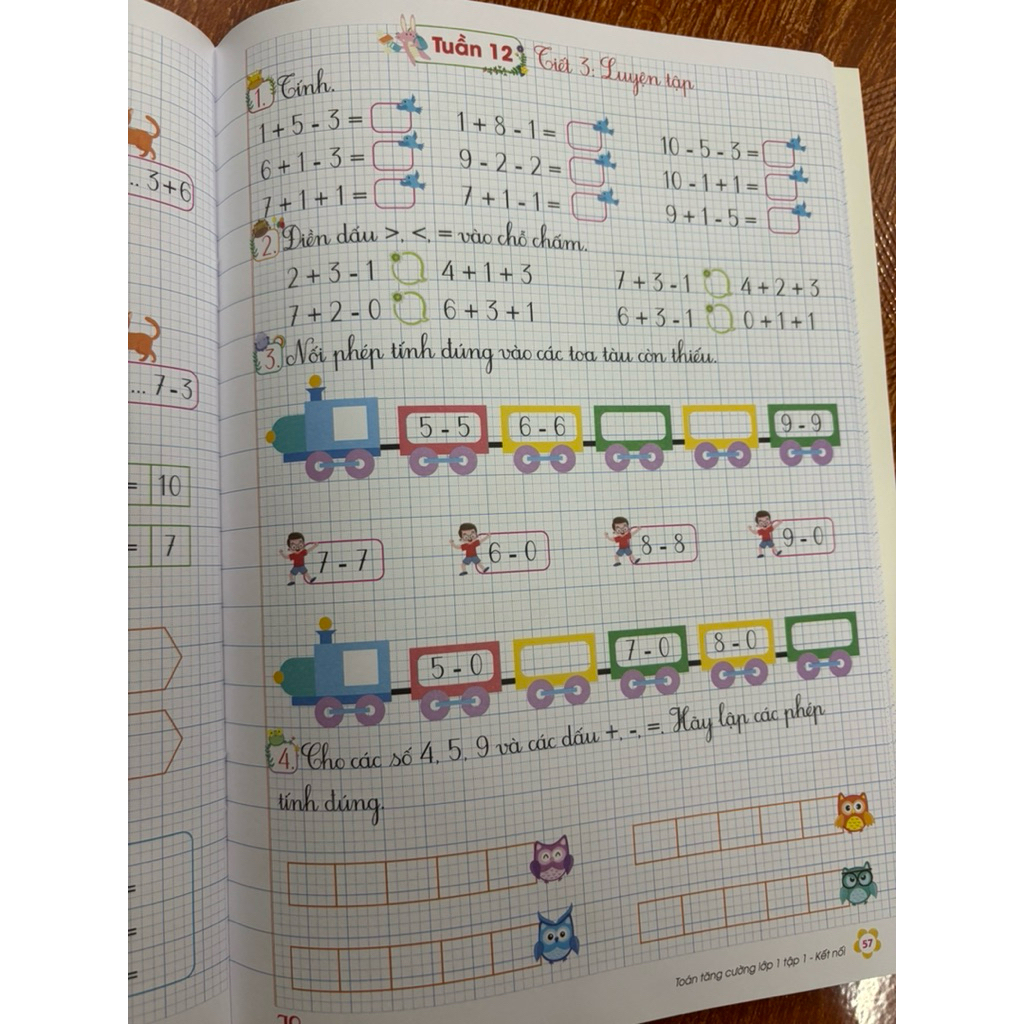 Tuần 12 Tiết 3: Luyện tập
1. Tính.
1 + 5 - 3 = 1 + 8 - 1 = 10 - 5 - 3 =
6 + 1 - 3 = 9 - 2 - 2 = 10 - 1 + 1 =
7 + 1 + 1 = 7 + 1 - 1 = 9 + 1 - 5 =
2. Điền dấu >, <, = vào chỗ chấm.
2 + 3 - 1 4 + 1 + 3 7 + 3 - 1 4 + 2 + 3
7 + 2 - 0 6 + 3 + 1 6 + 3 - 1 0 + 1 + 1
3. Nối phép tính đúng vào các toa tàu còn thiếu.
5 - 5 6 - 6 9 - 9
7 - 7 6 - 0 8 - 8 9 - 0
5 - 0 7 - 0 8 - 0
4. Cho các số 4, 5, 9 và các dấu +, -, =. Hãy lập các phép
tính đúng.
Toán tăng cường lớp 1 tập 1 - Kết nối 57
.. 3 + 6
... 7 - 3
= 10
= 7
=
=
=